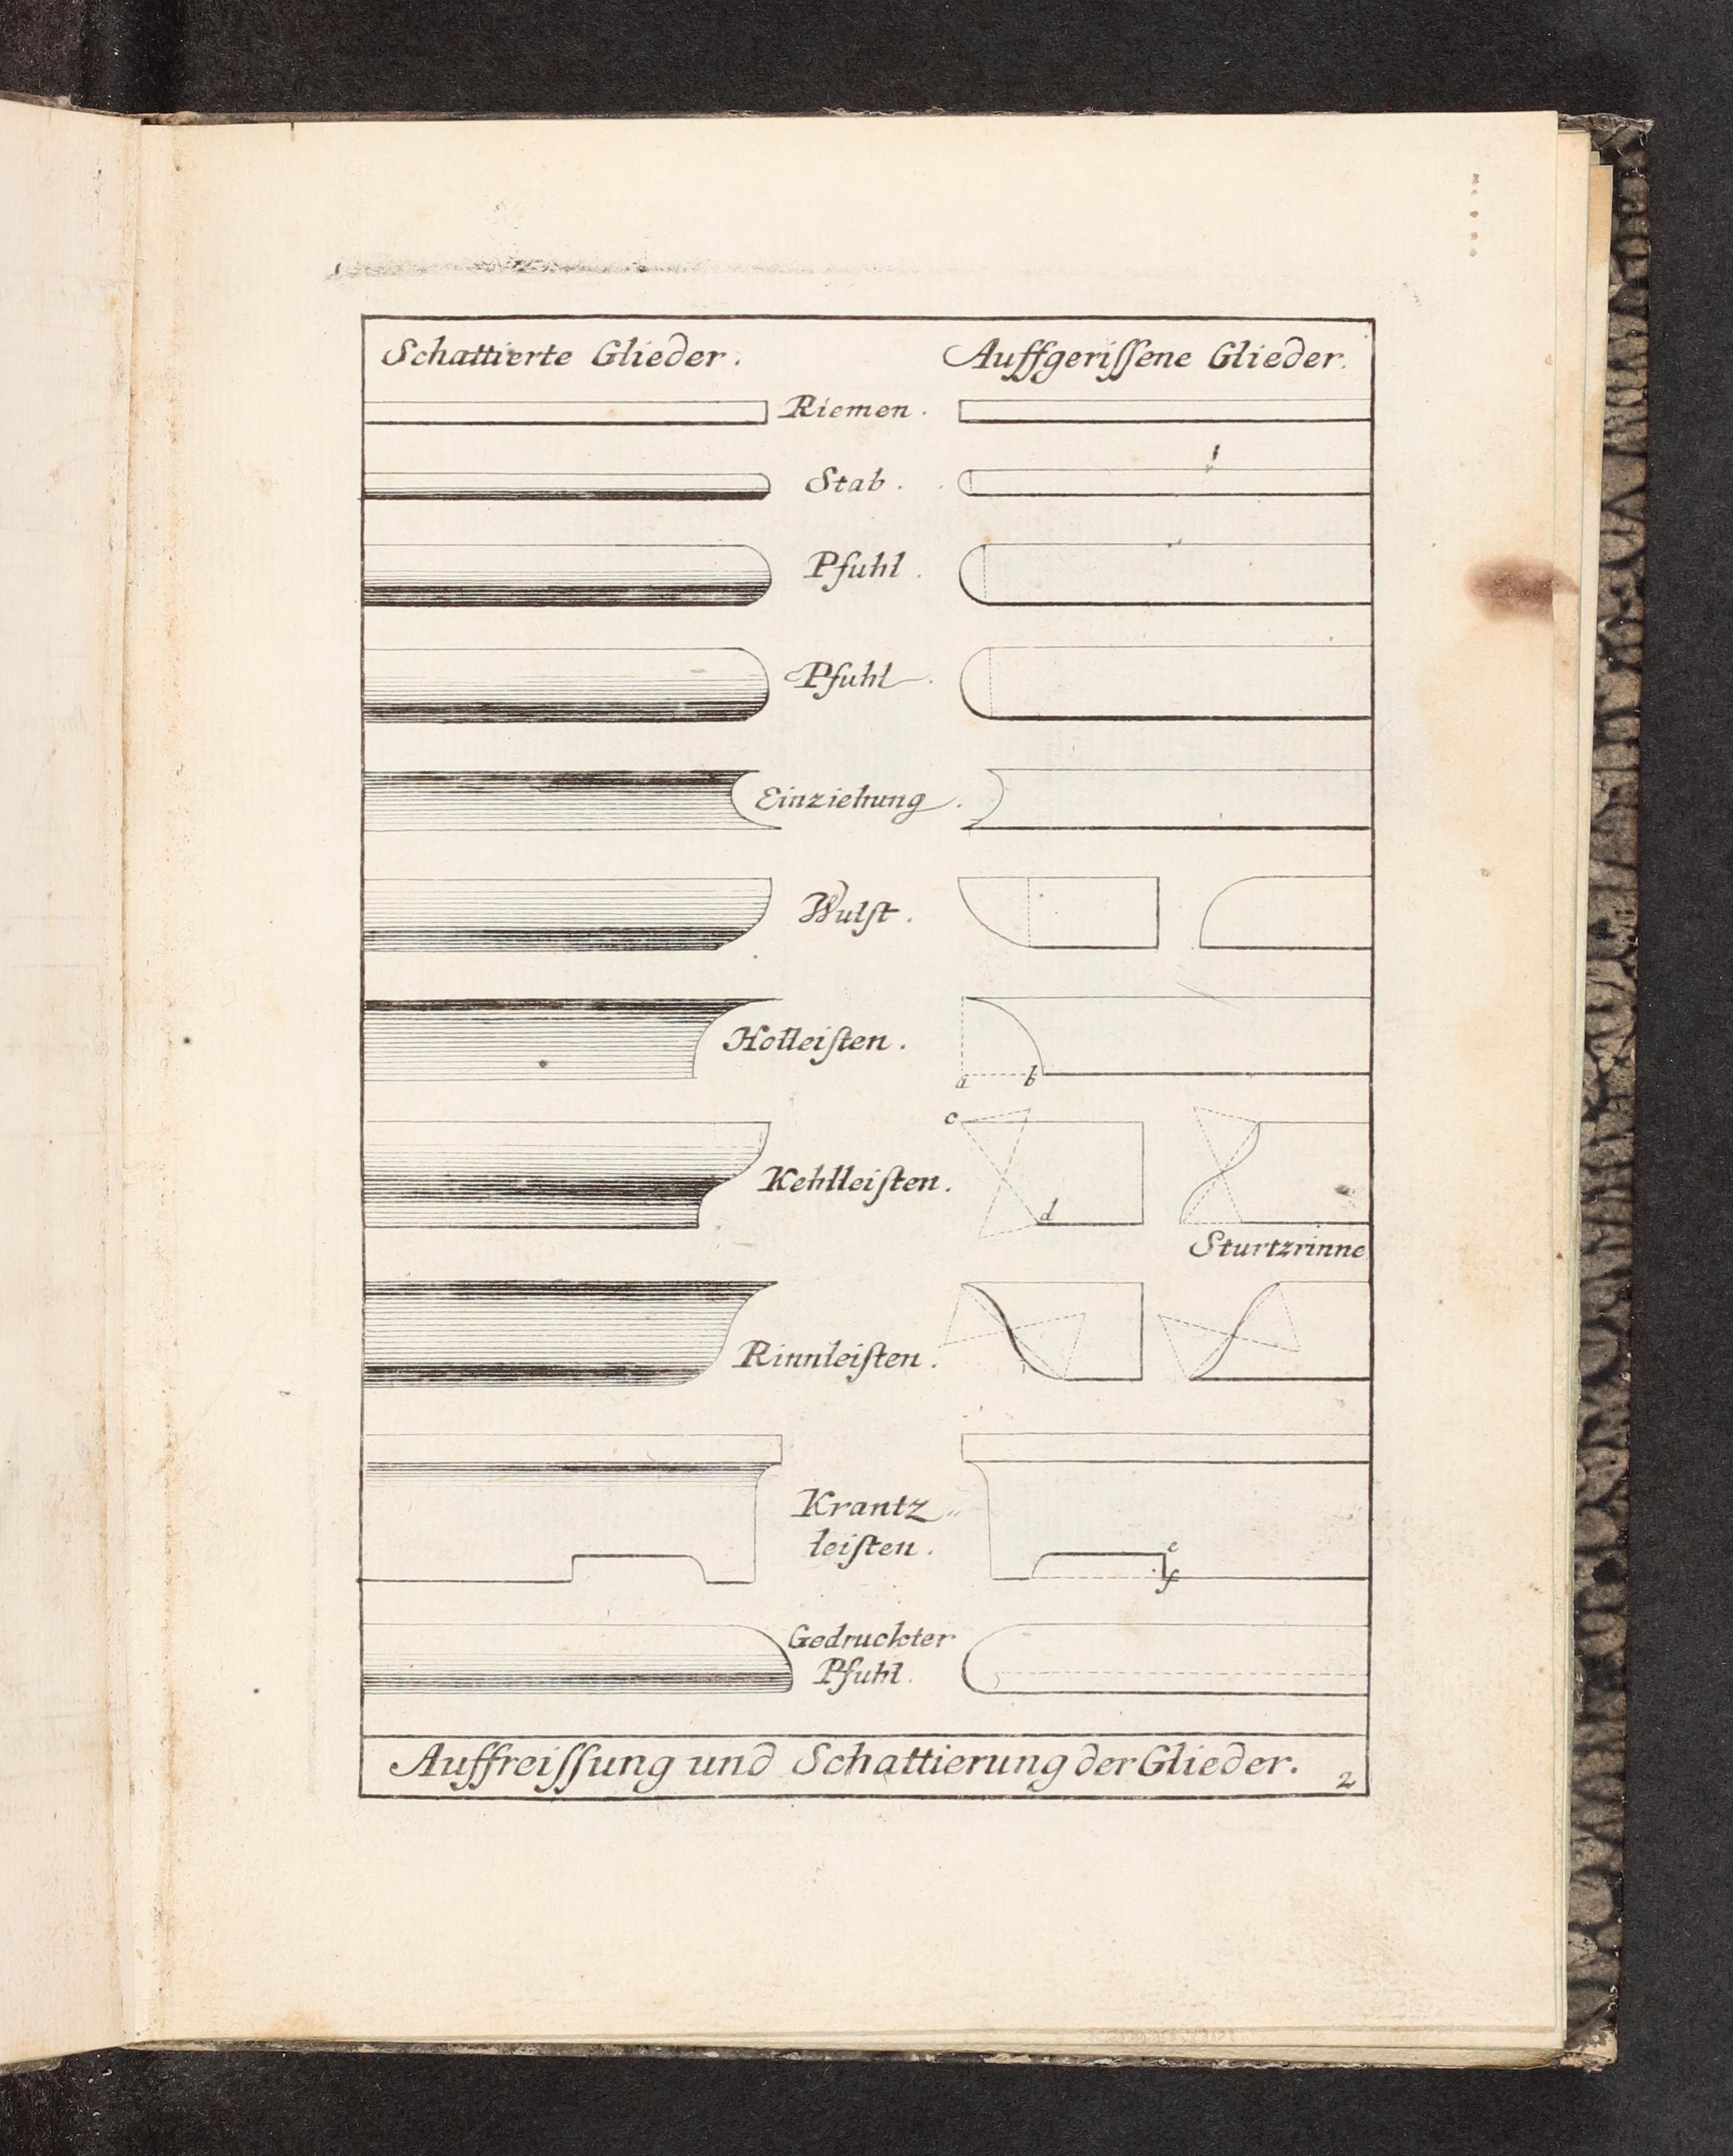 Schattierte Glieder. Auffgeriſſene Glieder.
Riemen.
Stab.
Pfuhl.
Pfuhl.
Einziehung.
Wulſt.
Holleiſten.
a b
c
Kehlleiſten.
d
Sturtzrinne
Rinnleiſten.
Krantz⸗
leiſten.
e
f
Gedruckter
Pfuhl.
Auffreiſſung und Schattierung der Glieder.
2